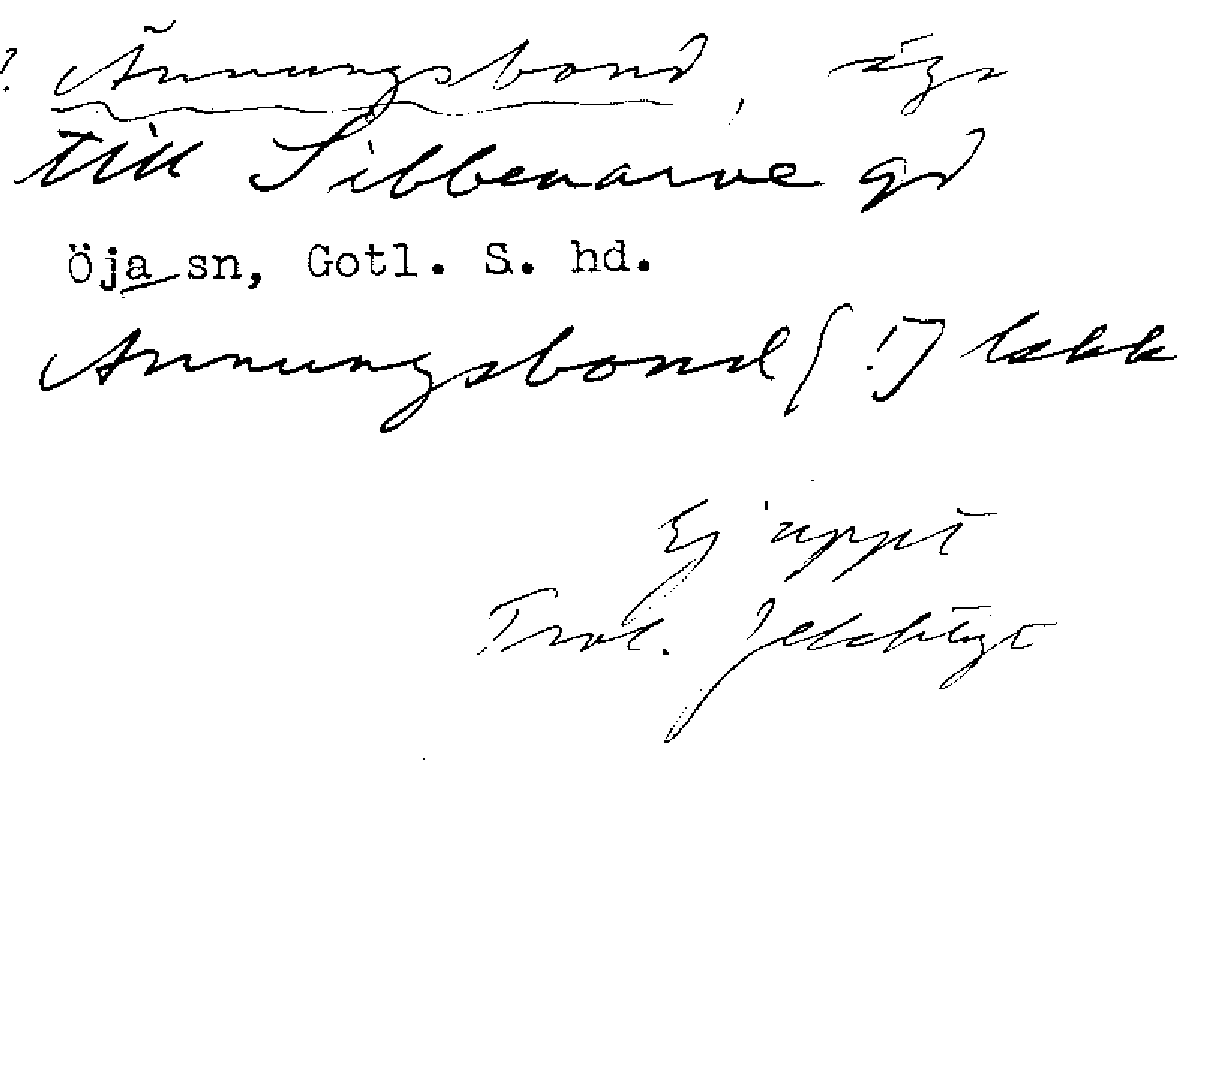 ? Ãnnungsbond, äga
till Sibbenarve gd
Öja sn, Gotl. S. hd.
Annungsbond [!] lekk
Ej uppt
Trol. felaktigt